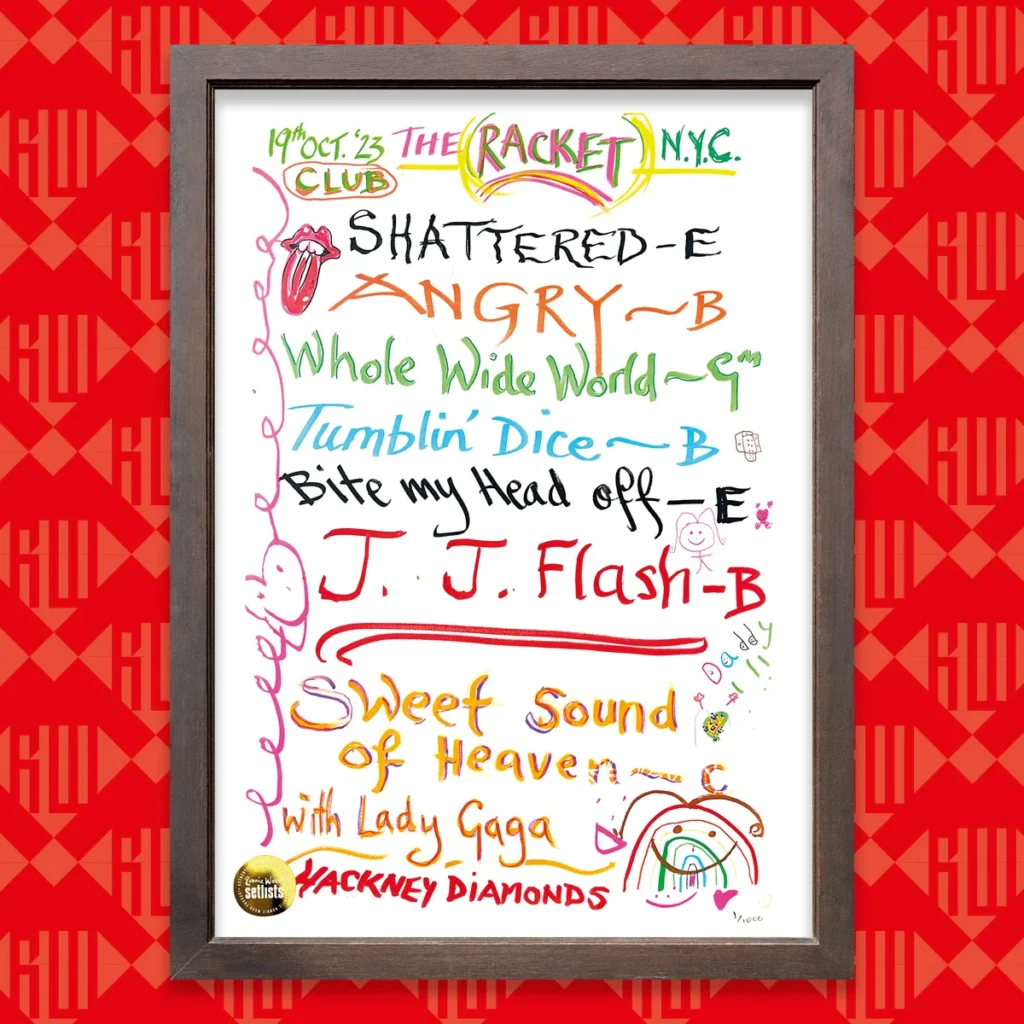 19th OCT. '23 THE (RACKET) N.Y.C.
CLUB
SHATTERED - E
ANGRY ~ B
Whole Wide World ~ Gm
Tumblin' Dice ~ B
Bite my Head off - E
J. J. Flash - B
Daddy
Sweet Sound
of Heaven ~ C
with Lady Gaga
HACKNEY DIAMONDS
Ronnie Wood
setlists
1/1000